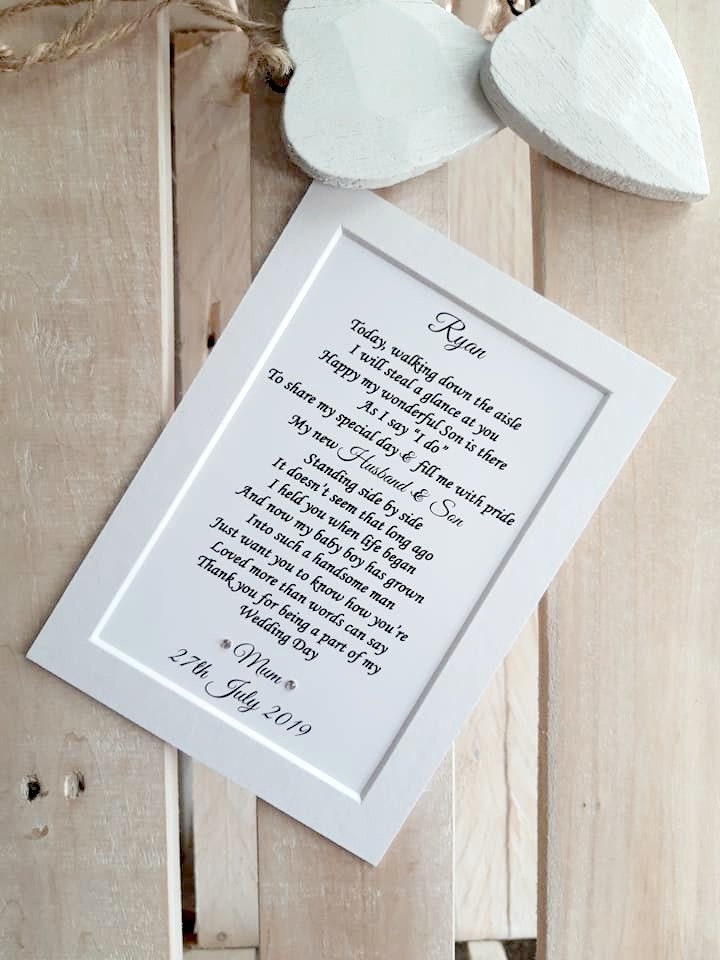 Ryan
Today, walking down the aisle
I will steal a glance at you
Happy my wonderful Son is there
As I say "I do"
To share my special day & fill me with pride
My new Husband & Son
Standing side by side
It doesn't seem that long ago
I held you when life began
And now my baby boy has grown
Into such a handsome man
Just want you to know how you're
Loved more than words can say
Thank you for being a part of my
Wedding Day
Mum
27th July 2019